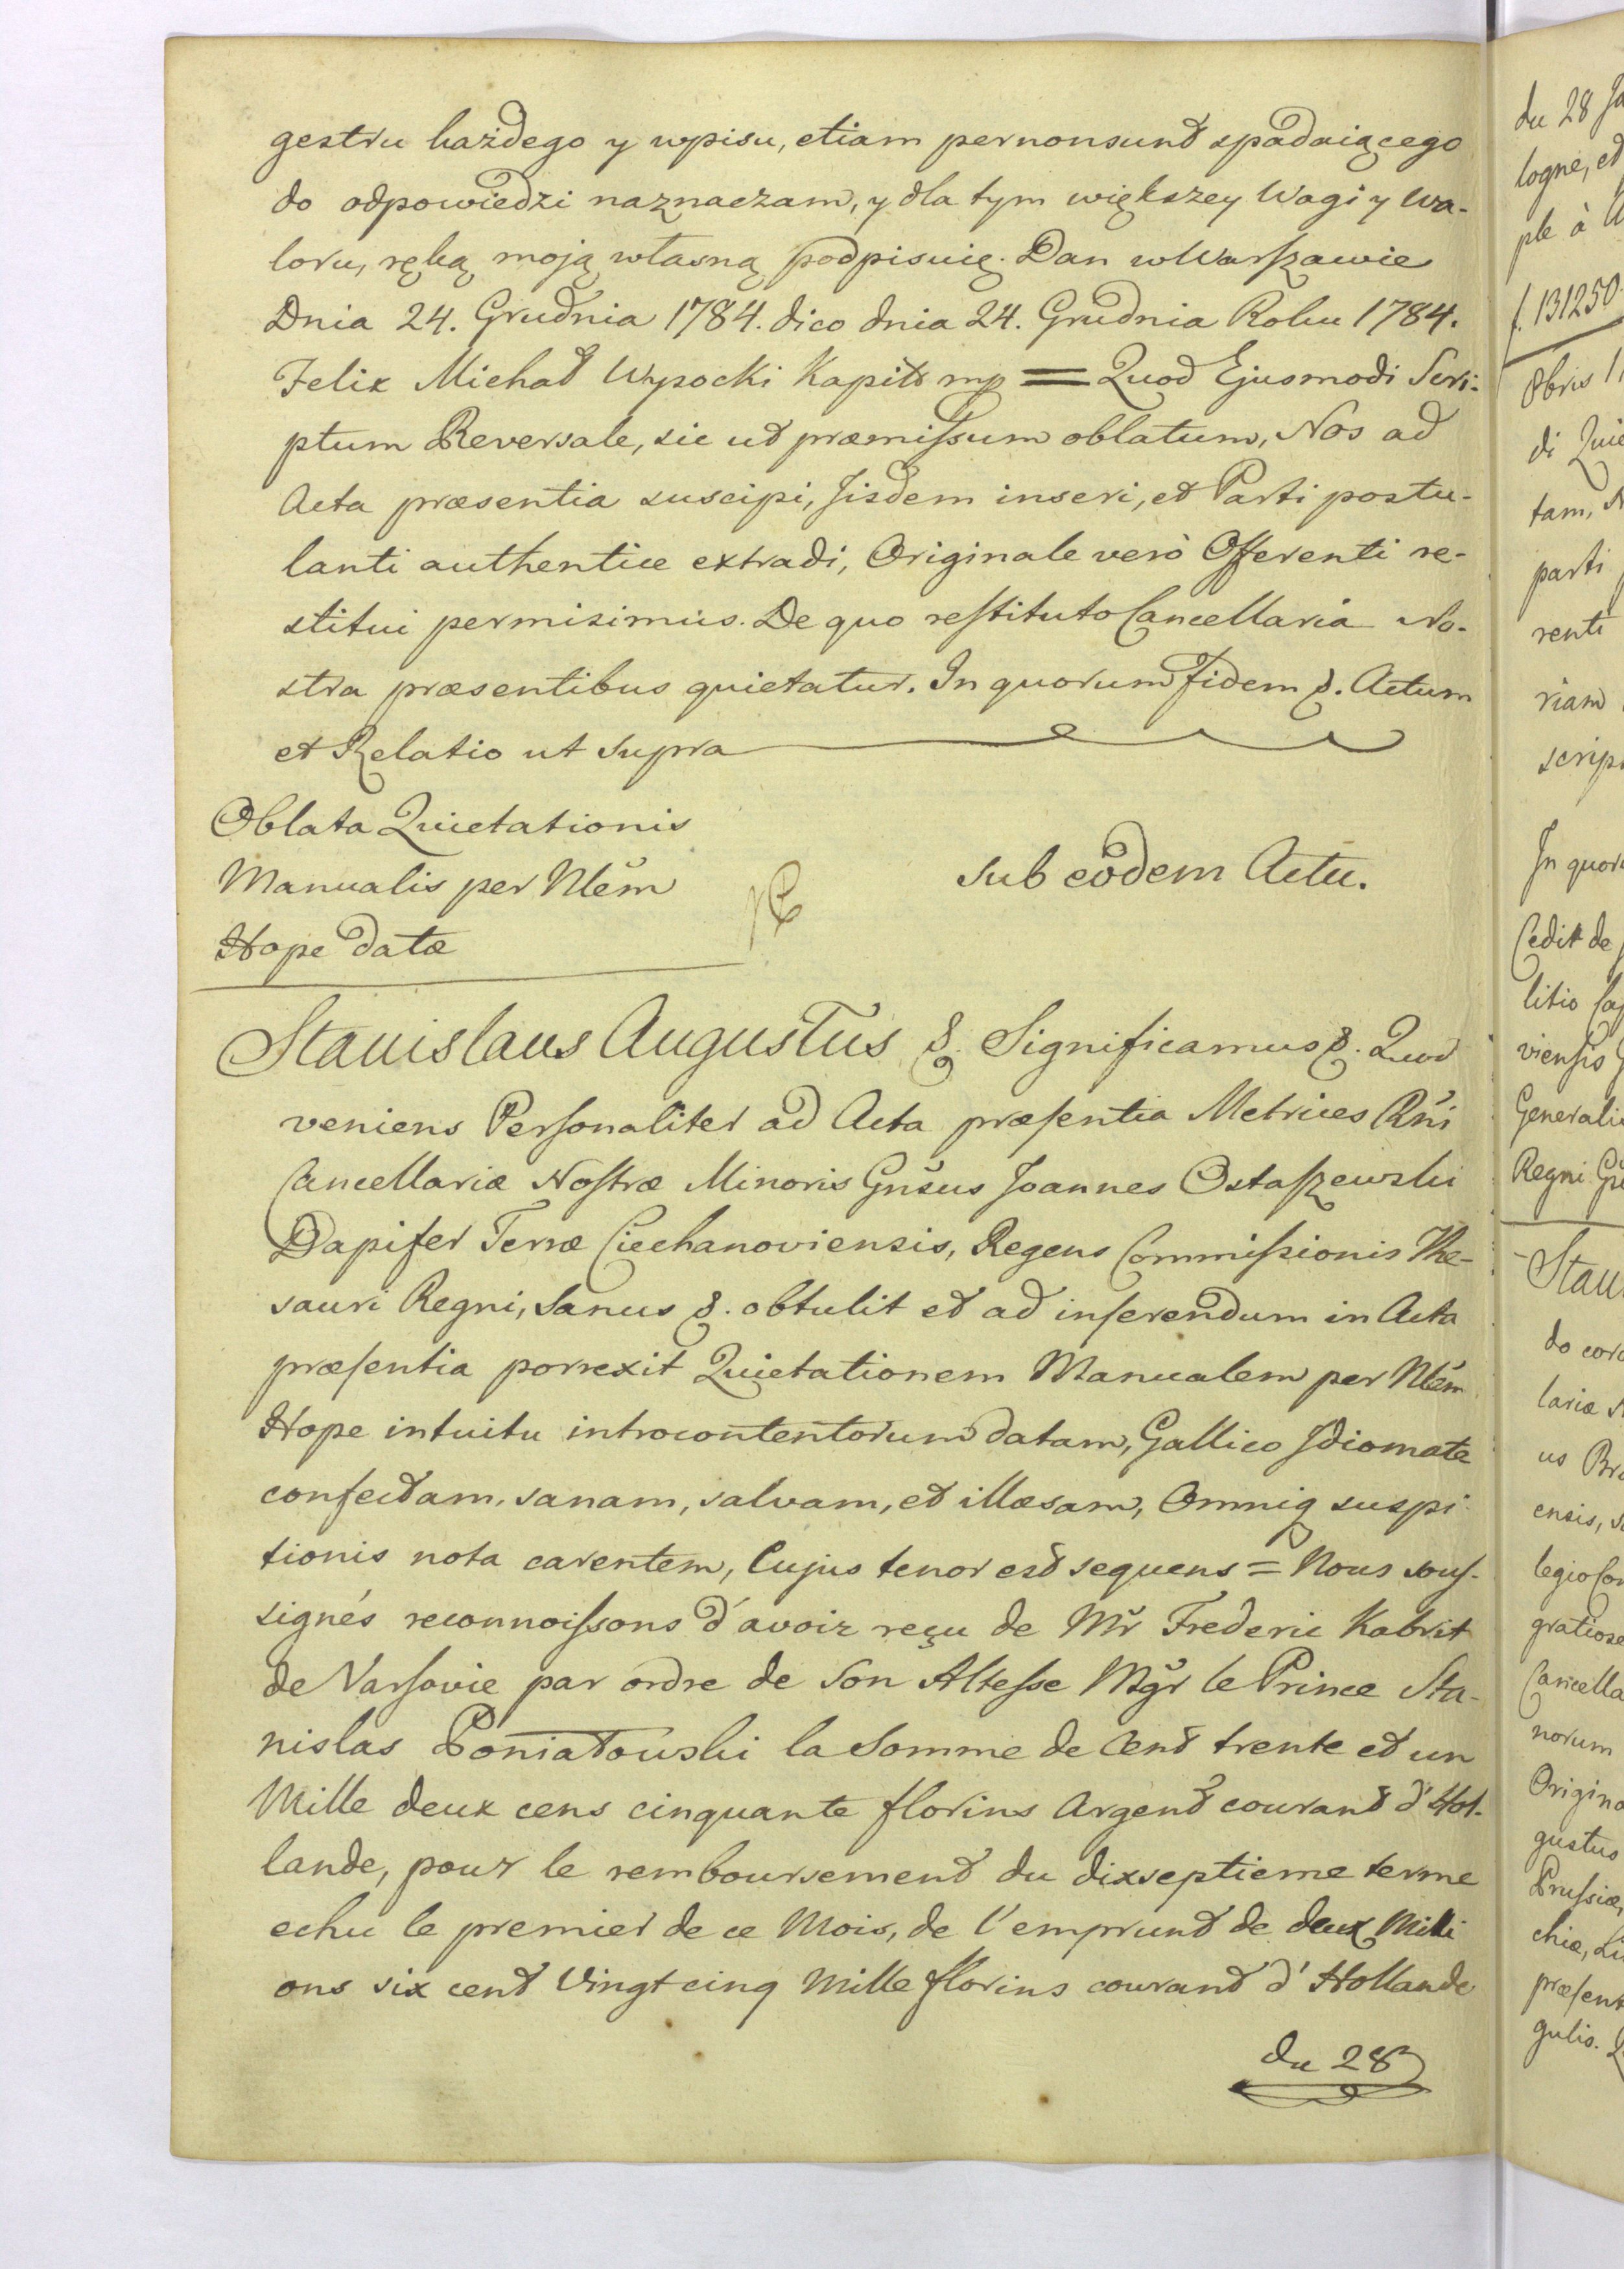 gestru każdego y wpisu, etiam pernonsunt spadaiącego
do odpowiedzi naznaczam, y dla tym większey Wagi y Wa-
loru, ręką moją własną podpisuię. Dan w Warszawie
Dnia 24. Grudnia 1784. dico dnia 24. Grudnia Roku 1784.
Felix Michał Wysocki Kapit mp = Quod Ejusmodi Scri-
ptum Reversale, sic ut præmissum oblatum, Nos ad
Acta præsentia suscipi, Iisdem inseri, et Parti postu-
lanti authentice extradi, Originale verò Offerenti re-
stitui permisimus. De quo restituto Cancellaria No-
stra præsentibus quietatur. In quorum Fidem &. Actum
et Relatio ut supra
Oblata Quietationis
Manualis per Nlem
Hope datæ
Sub eodem Actu.
Stanislaus Augustus &. Significamus &. Quod
veniens Personaliter ad Acta præsentia Metrices Rni
Cancellariæ Nostræ Minoris Gnsus Joannes Ostaszewski
Dapifer Terræ Ciechanoviensis, Regens Commissionis The-
sauri Regni, Sanus &. obtulit et ad inserendum in Acta
præsentia porrexit Quietationem Manualem per Nlem
Hope intuitu introcontentorum datam, Gallico Idiomate
confectam, sanam, salvam, et illæsam, Omniq suspi-
tionis nota carentem, Cujus tenor est sequens = Nous sous-
signés reconnoissons d'avoir reçu de Mr Frederic Kabrit
de Varsovie par ordre de Son Altesse Mgr le Prince Sta-
nislas Poniatowski la Somme de Cent trente et un
Mille deux cens cinquante florins Argent courant d'Hol-
lande, pour le remboursement du dixseptieme terme
echu le premier de ce Mois, de l'emprunt de deux Milli
ons six cent Vingt cinq Mille florins courant d'Hollande
du 28
du 28 Ja
logne, et
ple à
f. 131250
8bris
di Quie
tam,
parti
renti
riam
scrip
In quor
Cedit de
litio
viensis
Generali
Regni
Stau
do
lariæ
us
ensis,
legio
gratiose
Cancella
norum
Origina
gustus
Prussiæ,
chiæ,
præsent
gulis.